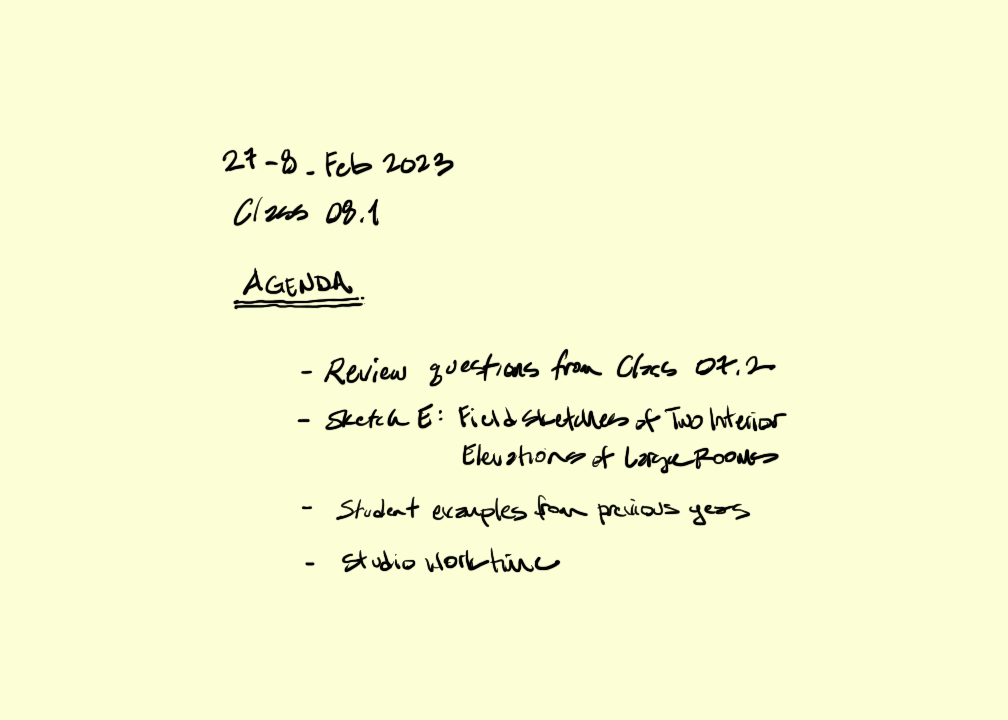 27-8. Feb 2023
Class 08.1
AGENDA
- Review questions from Class 07.2
- Sketch E: Field sketches of Two Interior
Elevations of Large Rooms
- Student examples from previous years
- Studio Worktime